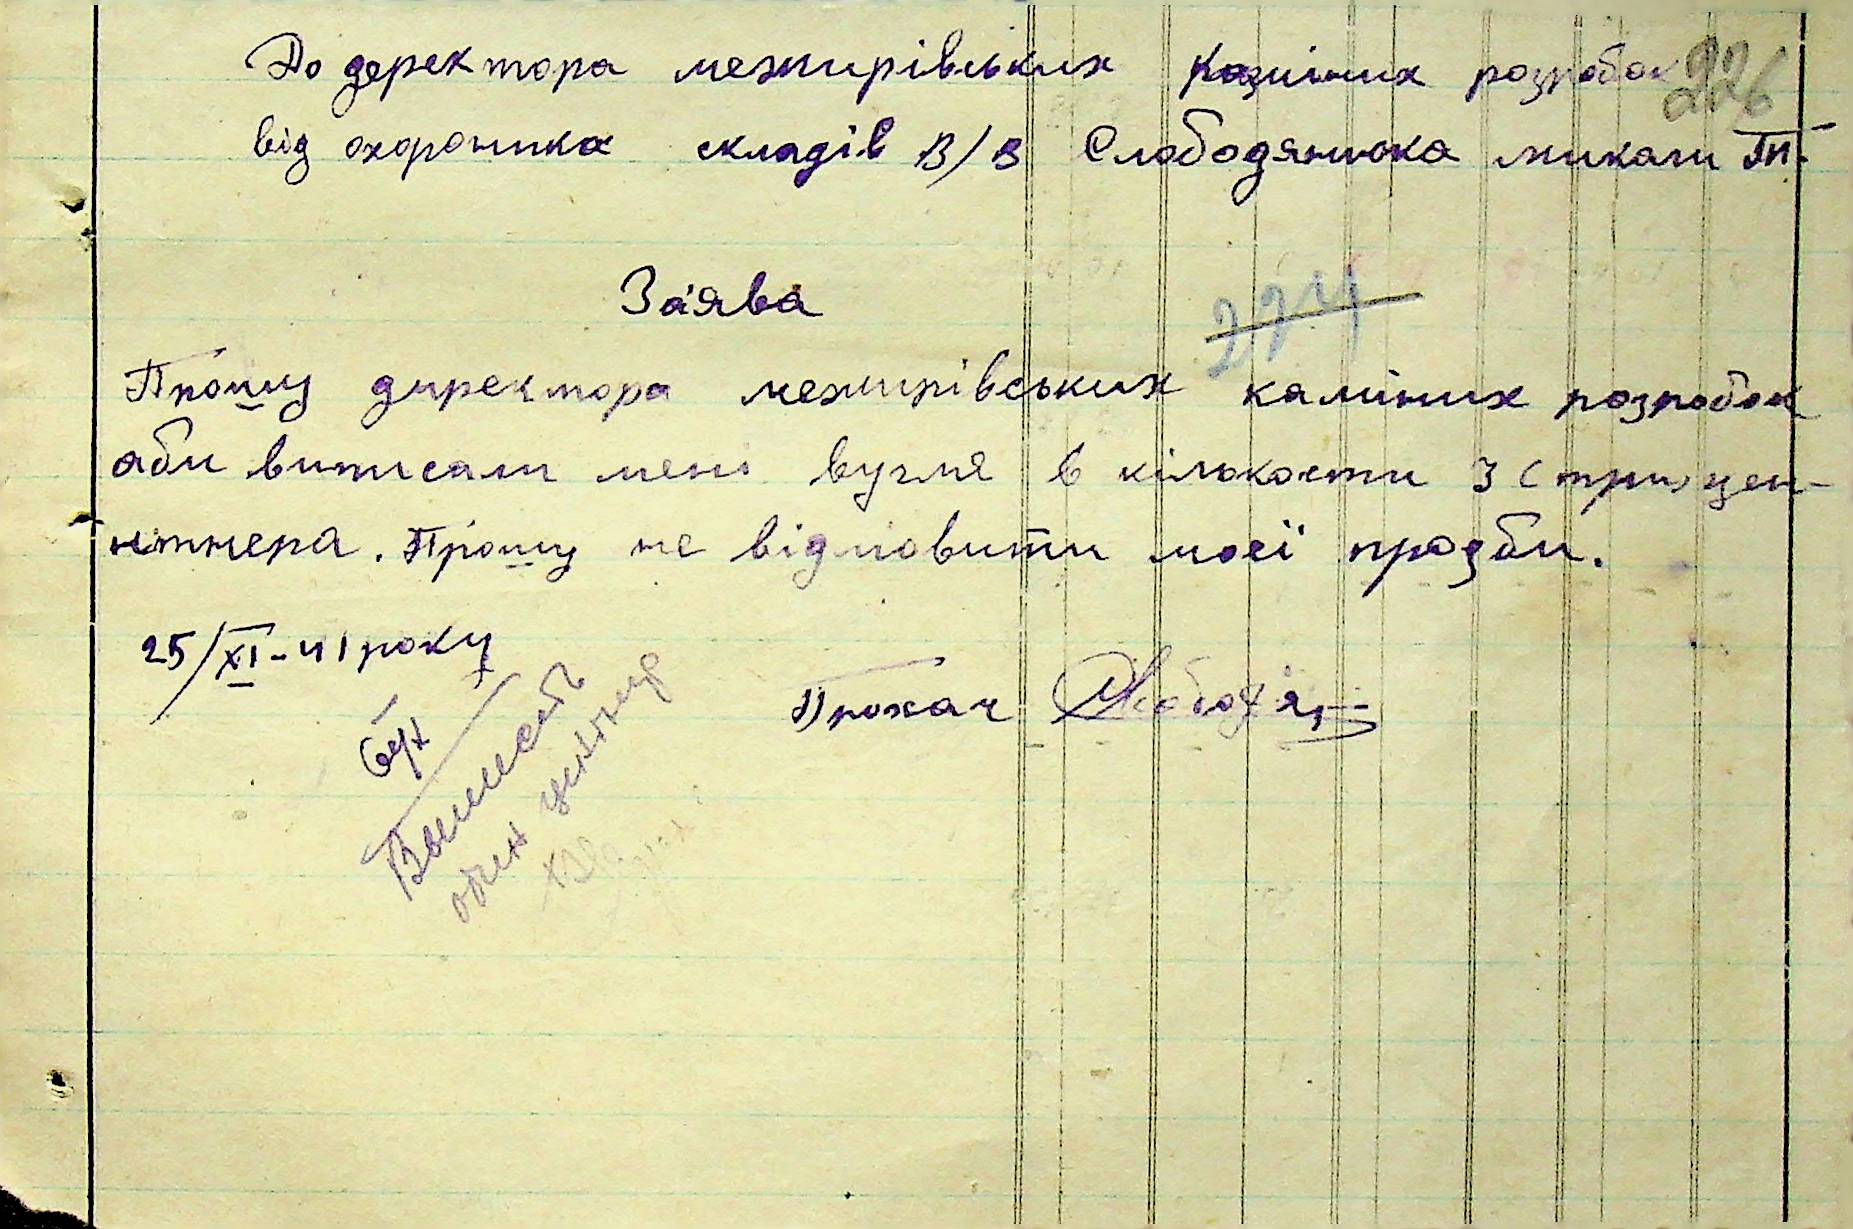 До деректора межирівських камініх розробок 226
від охороника складів В/В Слободянюка микали Тп.
За'ява
274
Прошу директора межирівських камініх розробок
аби виписали мені вугля в кількости 3 (три) цен-
нтнера. Прошу не відмовити моєї прозби.
25/XI-41 року
Прохач Слободян
бух
Выписать
один центнер